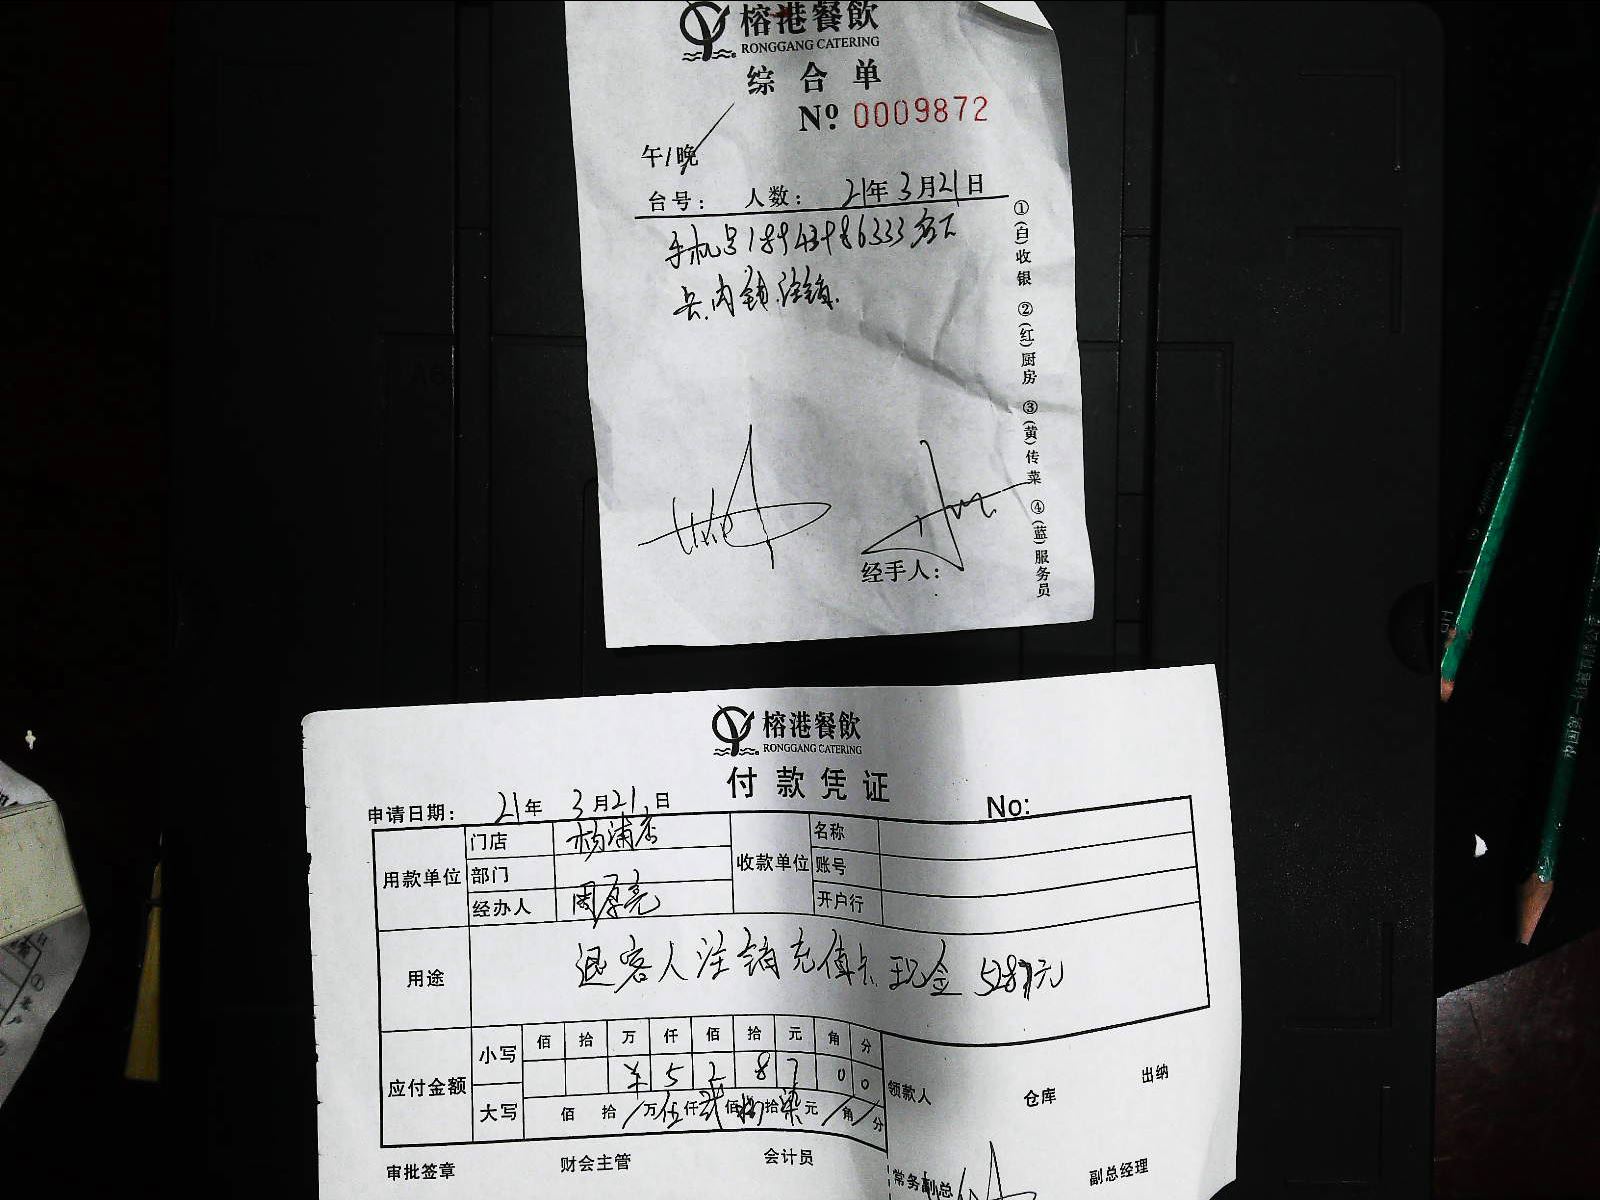 榕港餐飲
RONGGANG CATERING
综合单
Nº 0009872
午/晚
台号： 人数： 21年3月21日
手机号18943986333客人
卡内销注销.
①(白)收银 ②(红)厨房 ③(黄)传菜 ④(蓝)服务员
经手人：
榕港餐飲
RONGGANG CATERING
付款凭证
申请日期： 21年 3月21日 No:
用款单位 门店 杨浦店 收款单位 名称
部门 账号
经办人 周厚亮 开户行
用途 退客人注销充值卡现金5287元
应付金额 小写 佰 拾 万 仟 佰 拾 元 角 分
¥ 5 2 8 7 0 0
大写 佰 拾 / 万 伍 仟 贰 佰 捌 拾 柒 元 / 角 / 分
领款人 仓库 出纳
审批签章 财会主管 会计员 常务副总 副总经理
中国第一铅笔有限公司